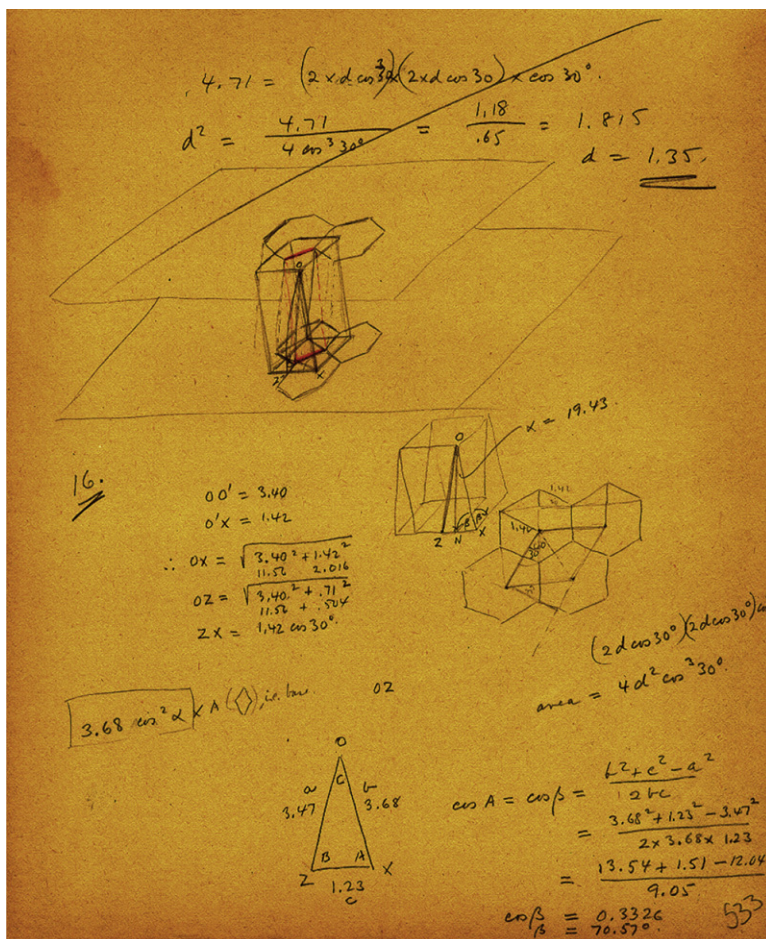 4.71 = (2 x d cos 30)(2 x d cos 30) x cos 30°.
d² = 4.71 / 4 cos³ 30° = 1.18 / .65 = 1.815
d = 1.35.
O
Z X
x = 19.43.
16.
O
Z N X
β
1.42
1.42
OO' = 3.40
O'X = 1.42
∴ OX = √3.40² + 1.42²
11.56 2.016
OZ = √3.40² + .71²
11.56 + .504
ZX = 1.42 cos 30°
(2d cos 30°)(2d cos 30°) co
area = 4d² cos³ 30°
3.68 cos² α x A (◇), i.e. base
OZ
O
C
a b
3.47 3.68
B A
Z X
1.23
c
cos A = cos β = b² + c² - a² / 2bc
= 3.68² + 1.23² - 3.47² / 2 x 3.68 x 1.23
= 13.54 + 1.51 - 12.04 / 9.05
cos β = 0.3326
β = 70.57°.
533